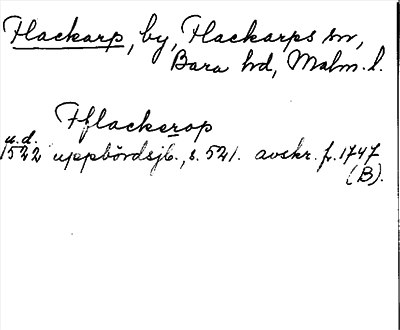 Flackarp, by, Flackarps sn,
Bara hd, Malm. l.
Fflackerop
u.d.
1522 uppbördsjb., s. 521. avskr. fr. 1747
(B).